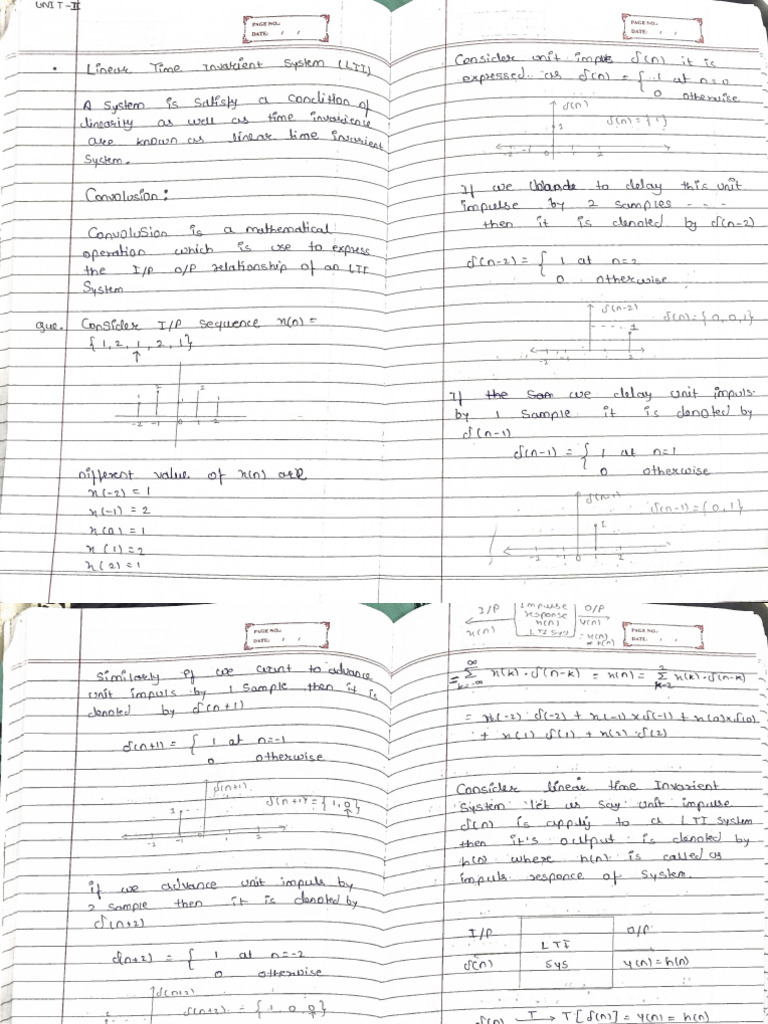 UNIT-II
PAGE NO.
DATE: / /
Linear Time Invarient System (LTI)
A System is Satisfy a Condition of
linearity as well as time invarience
are known as linear time invarient
System.
Convolusion:
Convolusion is a mathematical
operation which is use to express
the I/P O/P relationship of an LTI
System
que. Consider I/P sequence x(n) =
{1, 2, 1, 2, 1}
↑
2 2
-2 -1 0 1 2
Different value of x(n) are
x(-2) = 1
x(-1) = 2
x(0) = 1
x(1) = 2
x(2) = 1
PAGE NO.
DATE: / /
Consider unit impuls δ(n) it is
expressed as δ(n) = { 1 at n=0
0 otherwise
δ(n)
1 δ(n) = {1}
-2 -1 0 1 2
If we to delay this unit
impulse by 2 samples ---
then it is denoted by δ(n-2)
δ(n-2) = { 1 at n=2
0 otherwise
δ(n-2)
1 δ(n) = {0, 0, 1}
-2 -1
If the Sam we delay unit impuls
by 1 Sample it is denoted by
δ(n-1)
δ(n-1) = { 1 at n=1
0 otherwise
δ(n-1)
1 δ(n-1) = {0, 1}
-2 -1 0 1 2
PAGE NO.
DATE: / /
Similarly if we want to advance
unit impuls by 1 Sample then it is
denoted by δ(n+1)
δ(n+1) = { 1 at n=-1
0 otherwise
δ(n+1)
1 δ(n+1) = {1, 0}
↑
-2 -1 0 1 2
if we advance unit impuls by
2 Sample then it is denoted by
δ(n+2)
δ(n+2) = { 1 at n=-2
0 otherwise
δ(n+2)
δ(n+2) = {1, 0, 0}
↑
I/P Impulse O/P
response
x(n) h(n) y(n)
LTI Sys = x(n)
* h(n)
PAGE NO.
DATE: / /
= ∞Σk=-∞ x(k)·δ(n-k) = x(n) = 2Σk=-2 x(k)·δ(n-k)
= x(-2)·δ(-2) + x(-1)×δ(-1) + x(0)×δ(0)
+ x(1)·δ(1) + x(2)·δ(2)
Consider linear time Invarient
System let us say unit impulse
δ(n) is apply to a LTI system
then it's output is denoted by
h(n) where h(n) is called as
impuls responce of System.
I/P O/P
LTI
δ(n) Sys y(n) = h(n)
δ(n) T→ T[δ(n)] = y(n) = h(n)